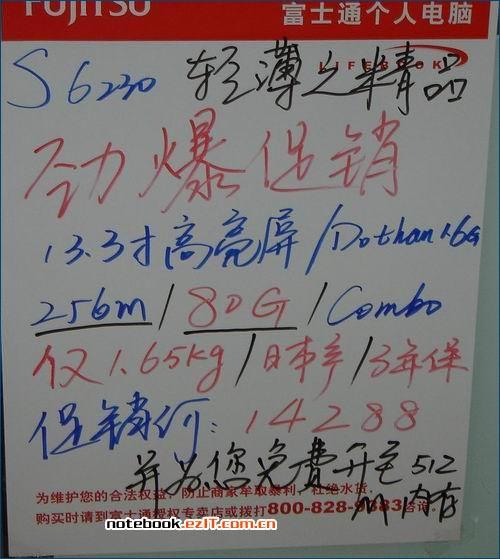 FUJITSU
富士通个人电脑
LIFEBOOK
S6230 轻薄之精品
劲爆促销
13.3寸高亮屏/Dothan1.6G
256m/80G/Combo
仅1.65kg/日本产/3年保
促销价:14288
并为您免费升至512
M内存
为维护您的合法权益，防止商家牟取暴利，杜绝水货，
购买时请到富士通授权专卖店或拨打800-828-9383咨询。
notebook.ezIT.com.cn